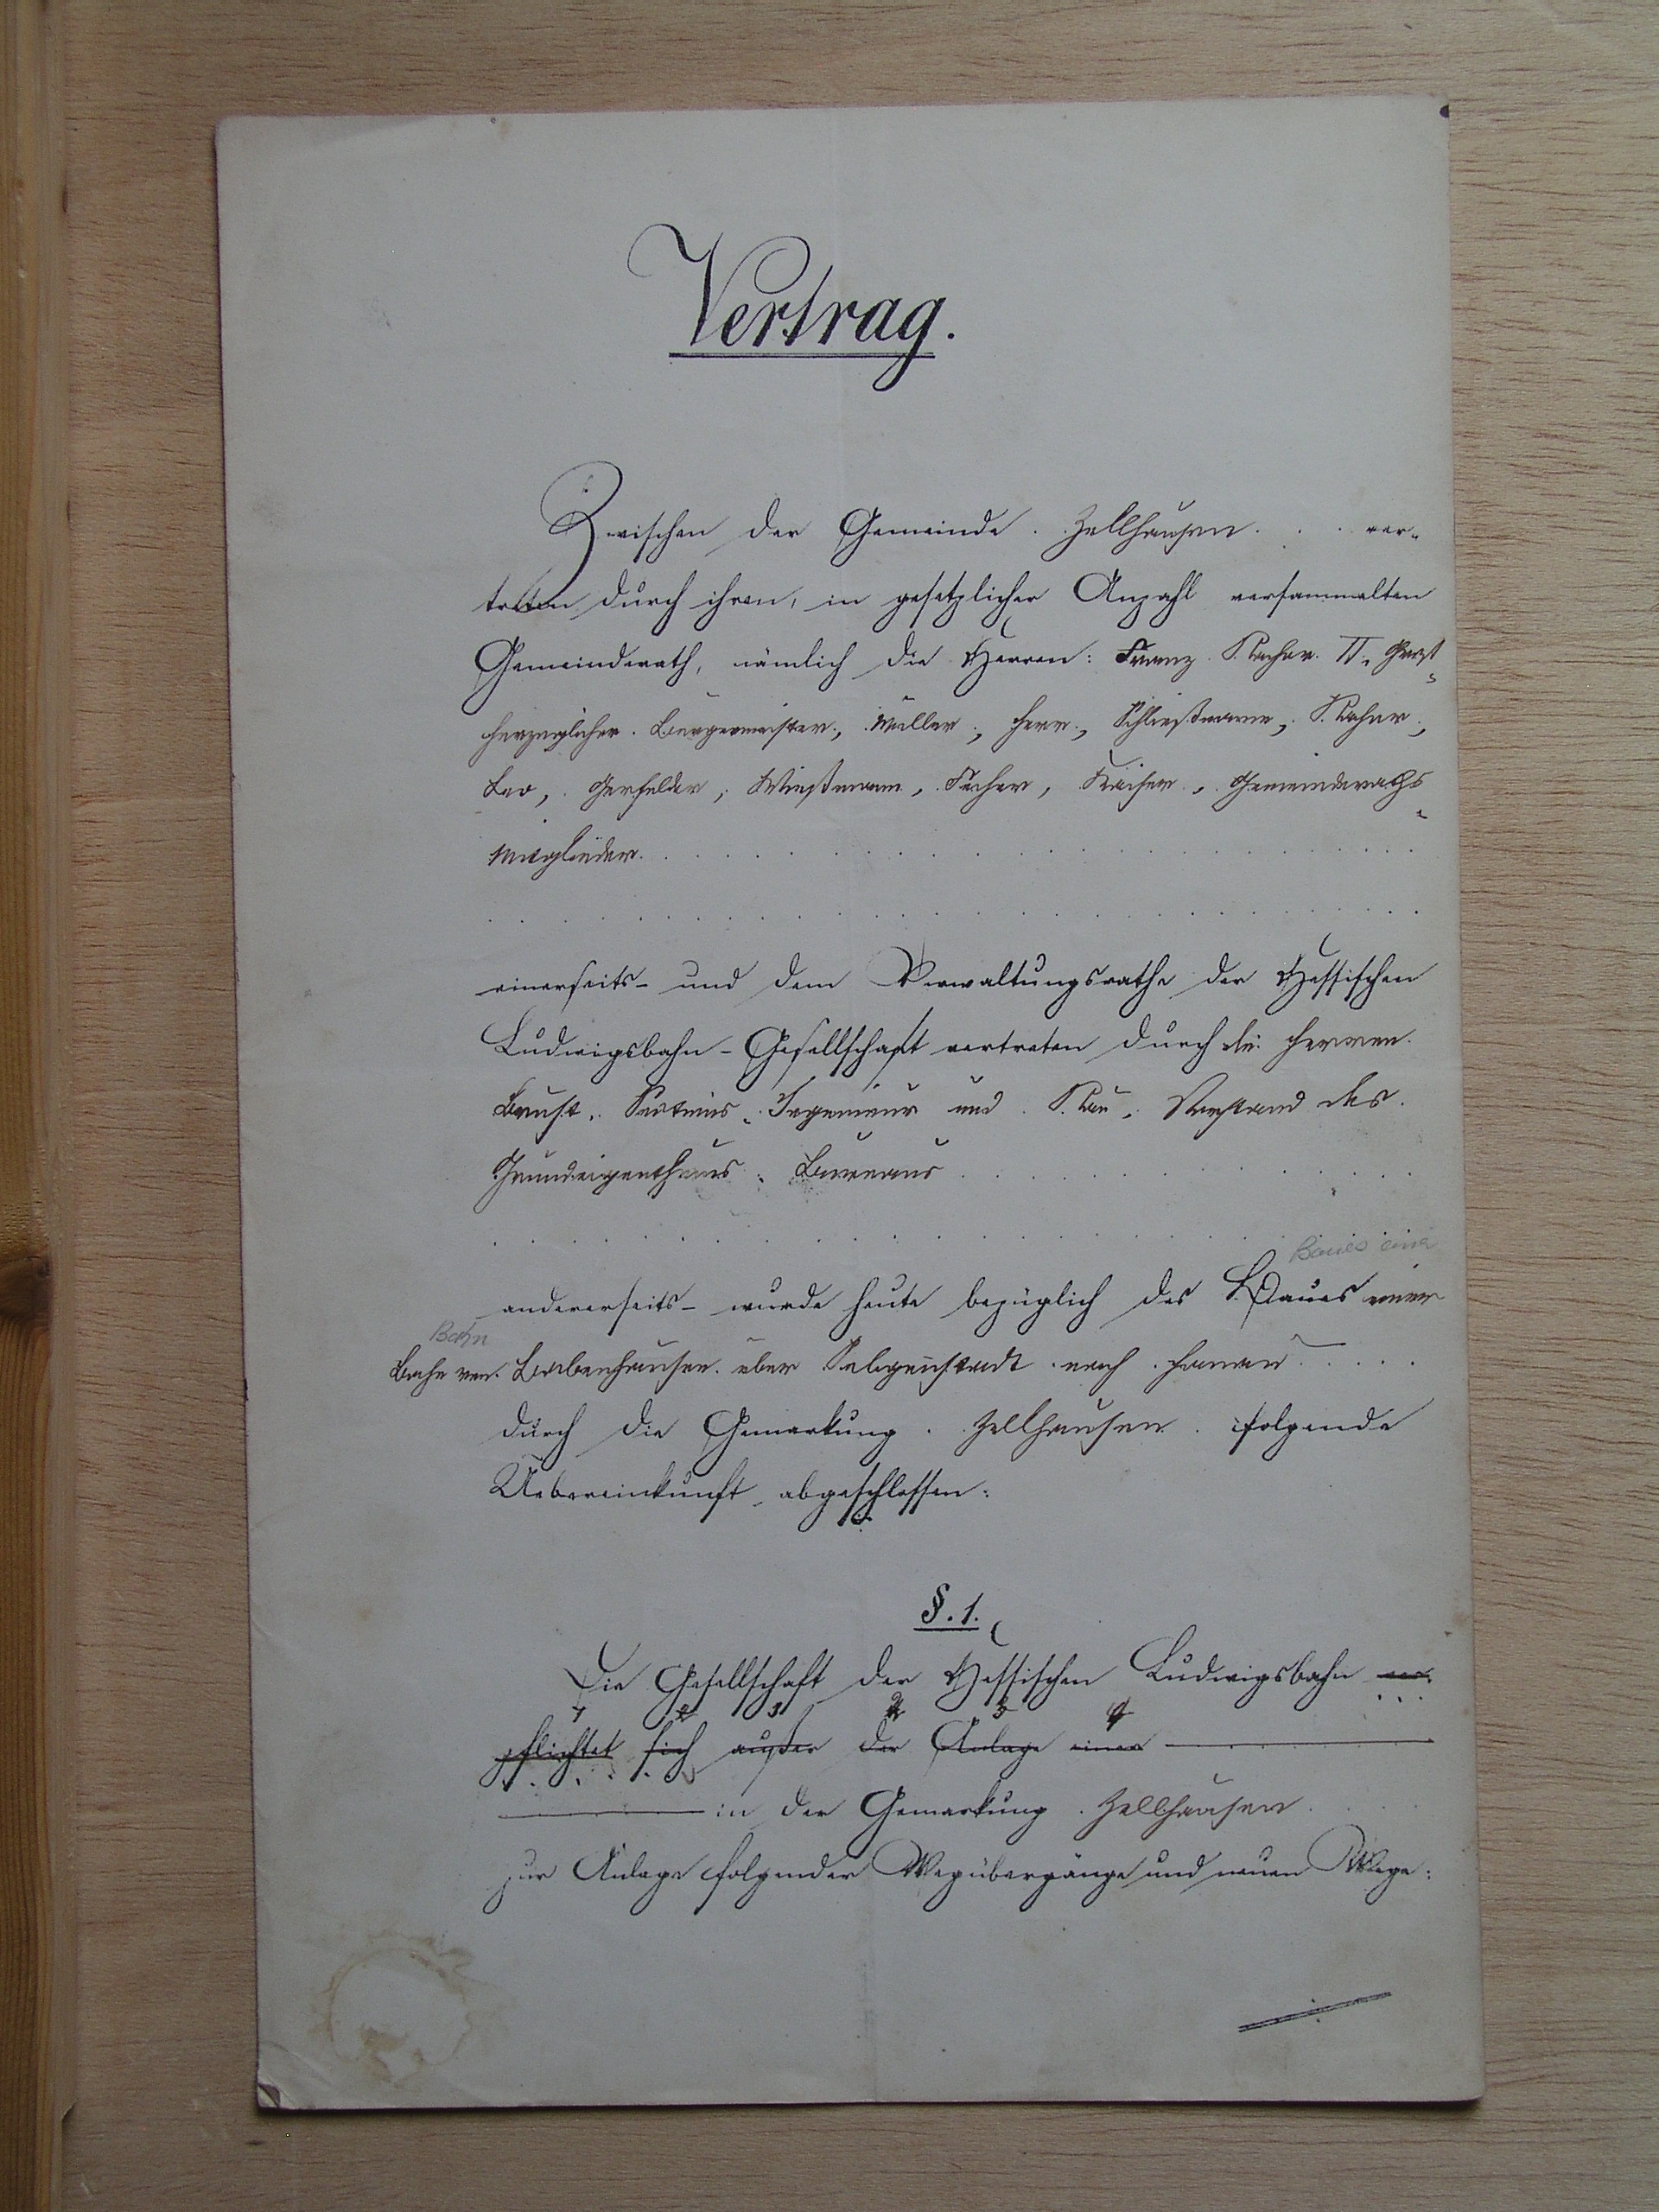 Vertrag.
Zwischen der Gemeinde Zellhausen ver-
treten durch ihren, in gesetzlicher Anzahl versammelten
Gemeinderath, nämlich die Herren: Franz Kacher II., Groß-
herzoglicher Bürgermeister, Müller, Herr, Schließmann, Kacher,
Leo, Gerfelder, Wießmann, Kaiser, Gemeinderaths-
Mitglieder.
einerseits - und dem Verwaltungsrathe der Hessischen
Ludwigsbahn-Gesellschaft vertreten durch die Herren
Ingenieur und Vorstand des
Grundeigenthums-Bureaus
Baues einer
andererseits - wurde heute bezüglich des Baues einer
Bahn
Bahn von Babenhausen über Seligenstadt nach Hanau
durch die Gemarkung Zellhausen folgende
Uebereinkunft abgeschlossen:
§. 1.
Die Gesellschaft der Hessischen Ludwigsbahn ver-
pflichtet sich außer der Anlage einer
in der Gemarkung Zellhausen
zur Anlage folgender Wegübergänge und neuen Wege: